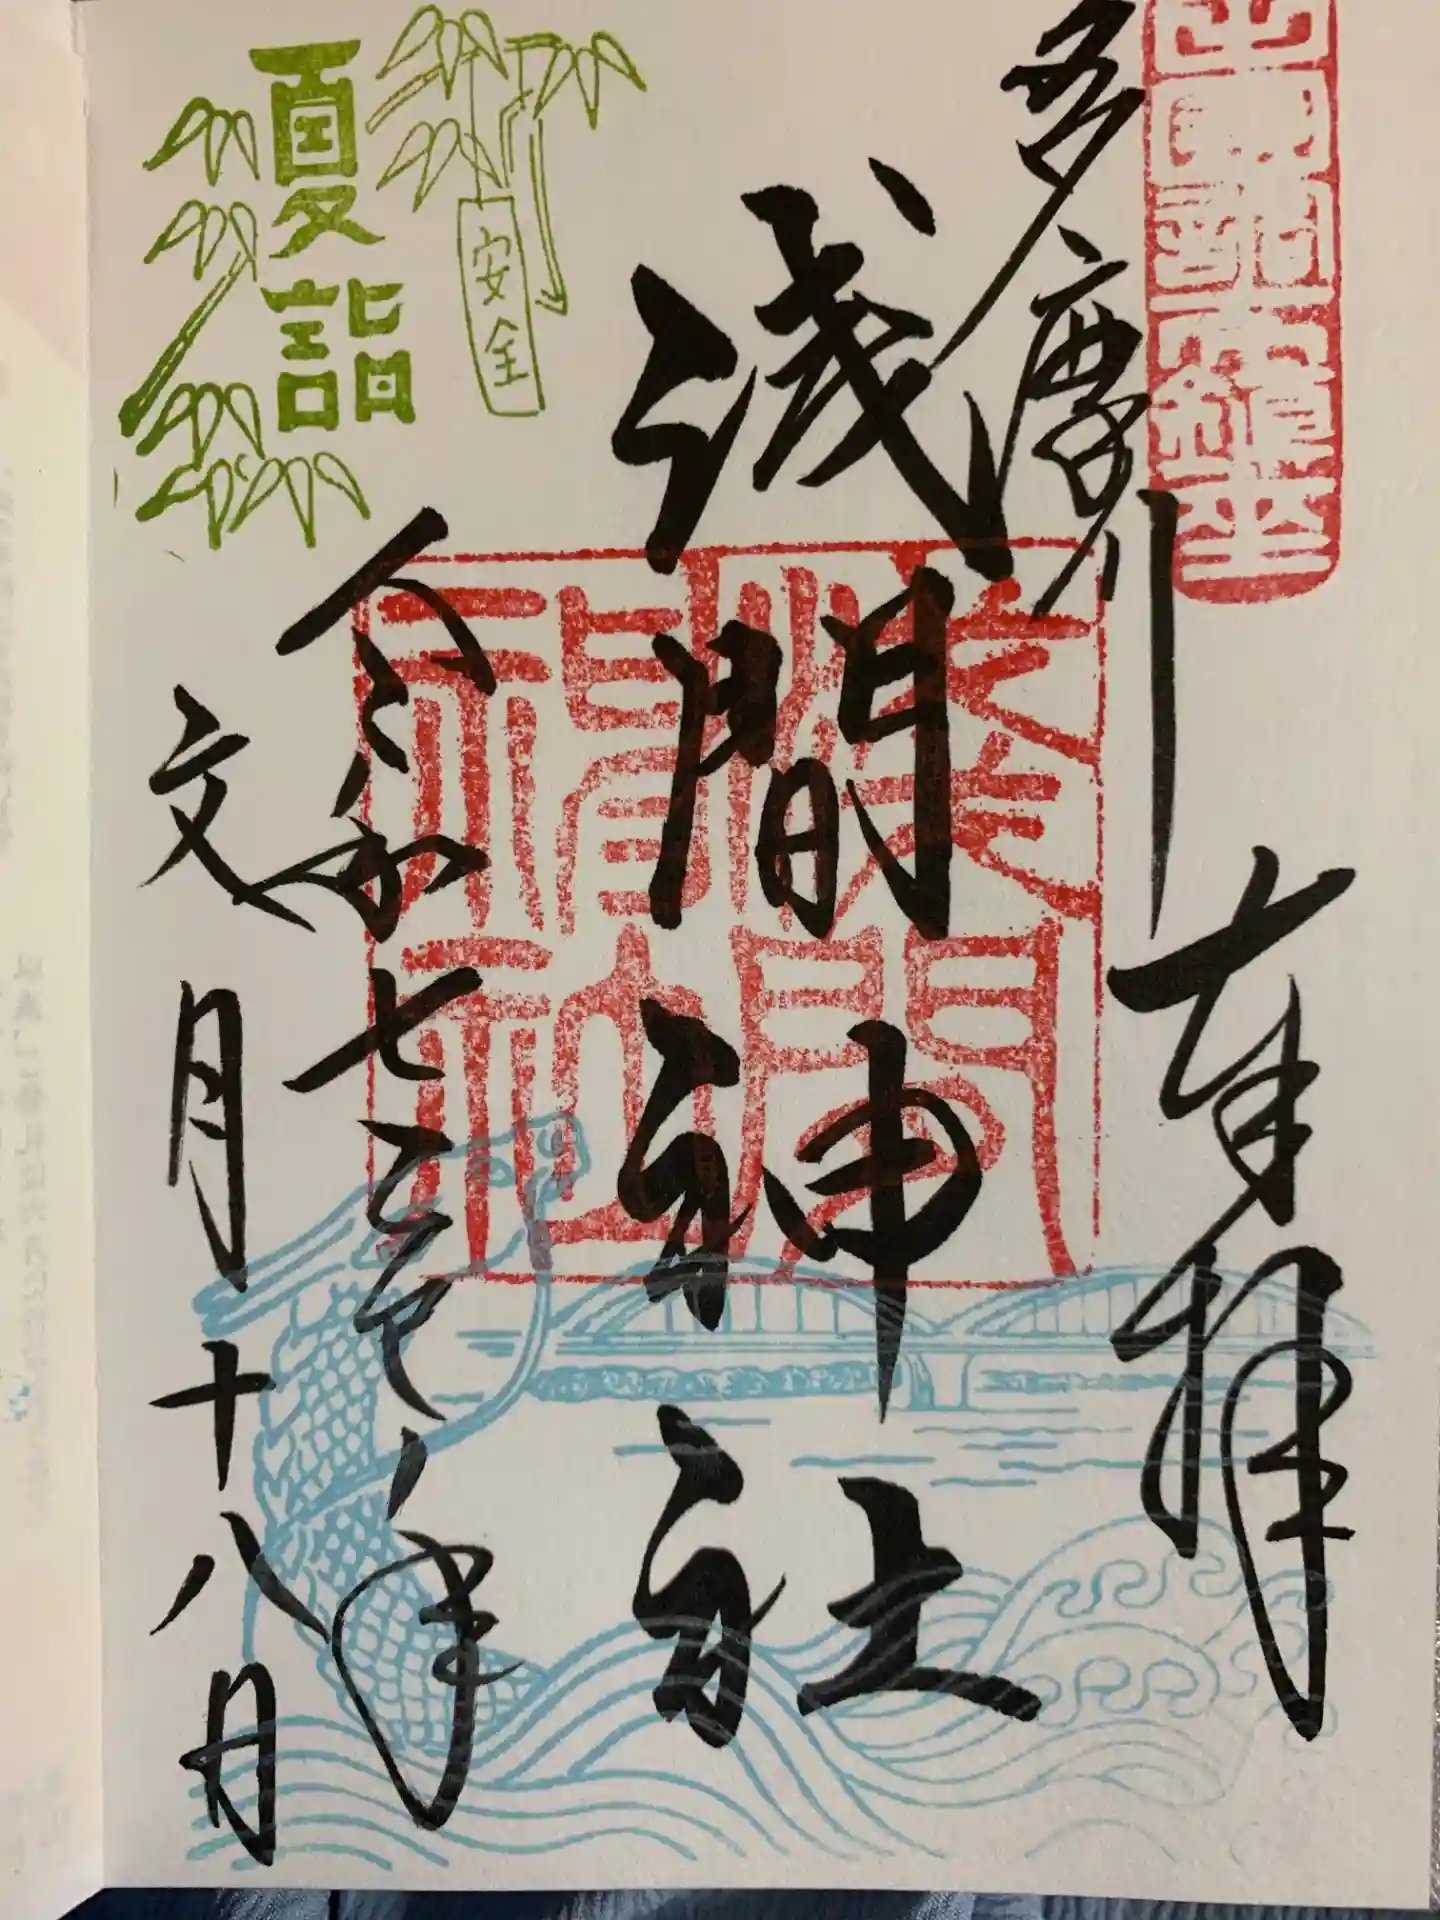 鎮座
奉拝
多摩川
浅間神社
淺間
神社
令和七乙巳年
文月十八日
安全
夏詣